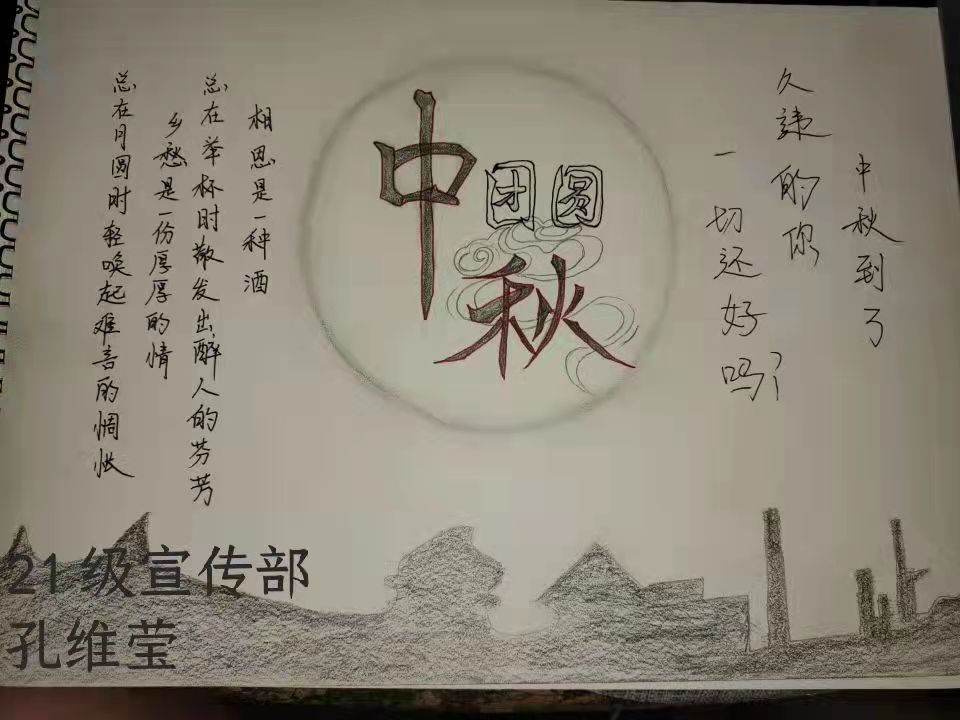 中秋到了
久违的你
一切还好吗?
中秋
团圆
相思是一种酒
总在举杯时散发出醉人的芬芳
乡愁是一份厚厚的情
总在月圆时轻唤起难言的惆怅
21级宣传部
孔维莹